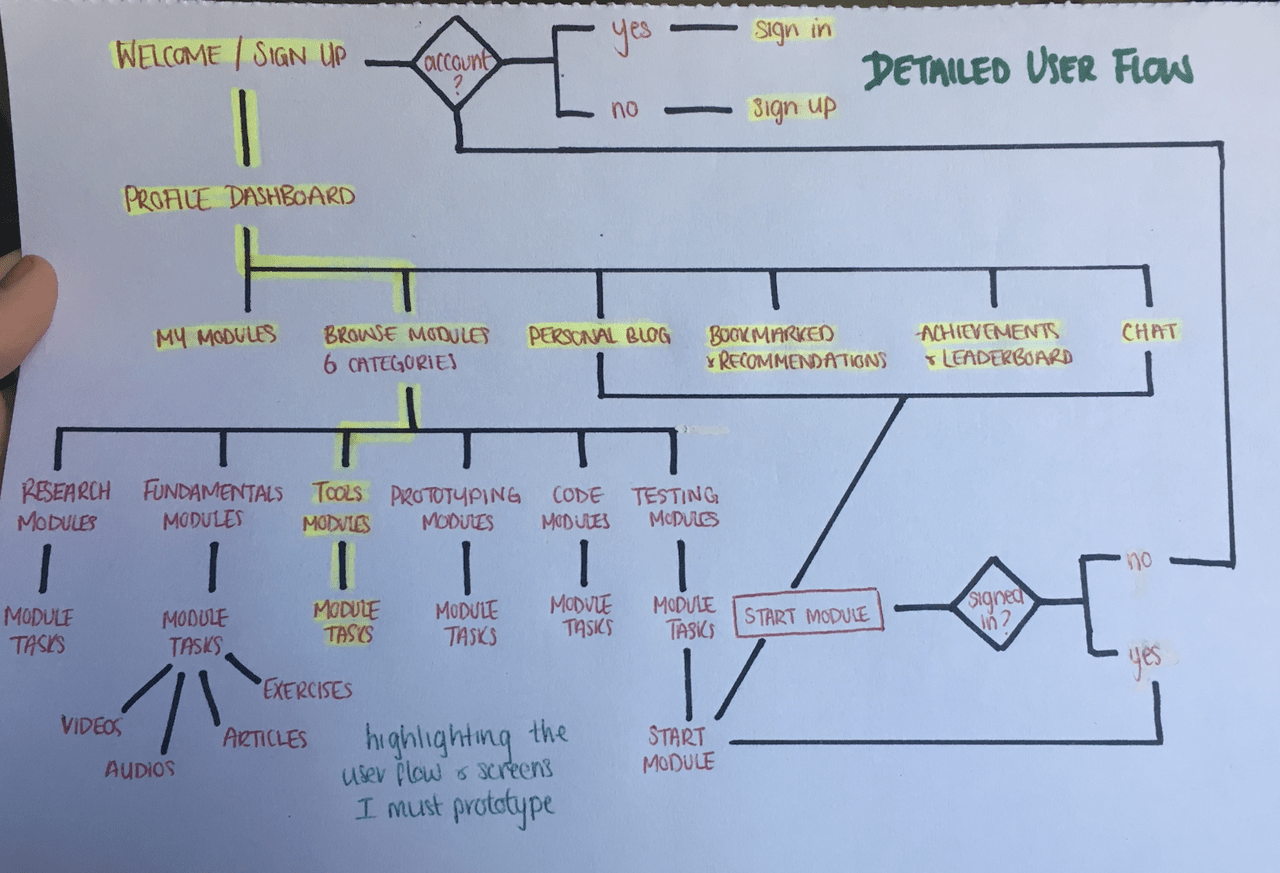 DETAILED USER FLOW
WELCOME / SIGN UP
account
?
yes
sign in
no
sign up
PROFILE DASHBOARD
MY MODULES
BROWSE MODULES
6 CATEGORIES
PERSONAL BLOG
BOOKMARKED
& RECOMMENDATIONS
ACHIEVEMENTS
& LEADERBOARD
CHAT
RESEARCH
MODULES
FUNDAMENTALS
MODULES
TOOLS
MODULES
PROTOTYPING
MODULES
CODE
MODULES
TESTING
MODULES
MODULE
TASKS
MODULE
TASKS
MODULE
TASKS
MODULE
TASKS
MODULE
TASKS
MODULE
TASKS
START MODULE
signed
in?
no
yes
VIDEOS
AUDIOS
ARTICLES
EXERCISES
START
MODULE
highlighting the
user flow & screens
I must prototype